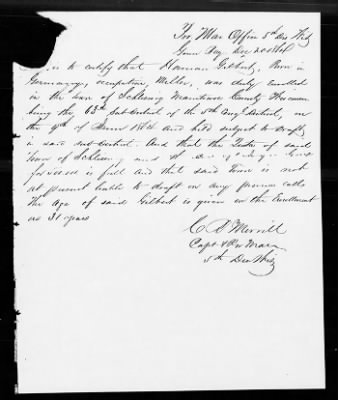 Pro. Mar Office 5th Dis Wis
Green Bay, Dec 20 1864
is to certify that Herman Gilbert, Born in
Germany, occupation, Miller, was duly Enrolled
in the town of Schleswig Manitowoc County Wisconsin
being the 63d Sub District of the 5th Cong District, on
the 9th of June 1864 and held subject to Draft
in said sub District. And that the Quota of said
Town of Schleswig
is full and that said Town is not
at present liable to draft on any previous calls
The age of said Gilbert is given on the Enrollment
as 31 years
C R Merrill
Capt & Pro Mar
5th Dis Wis